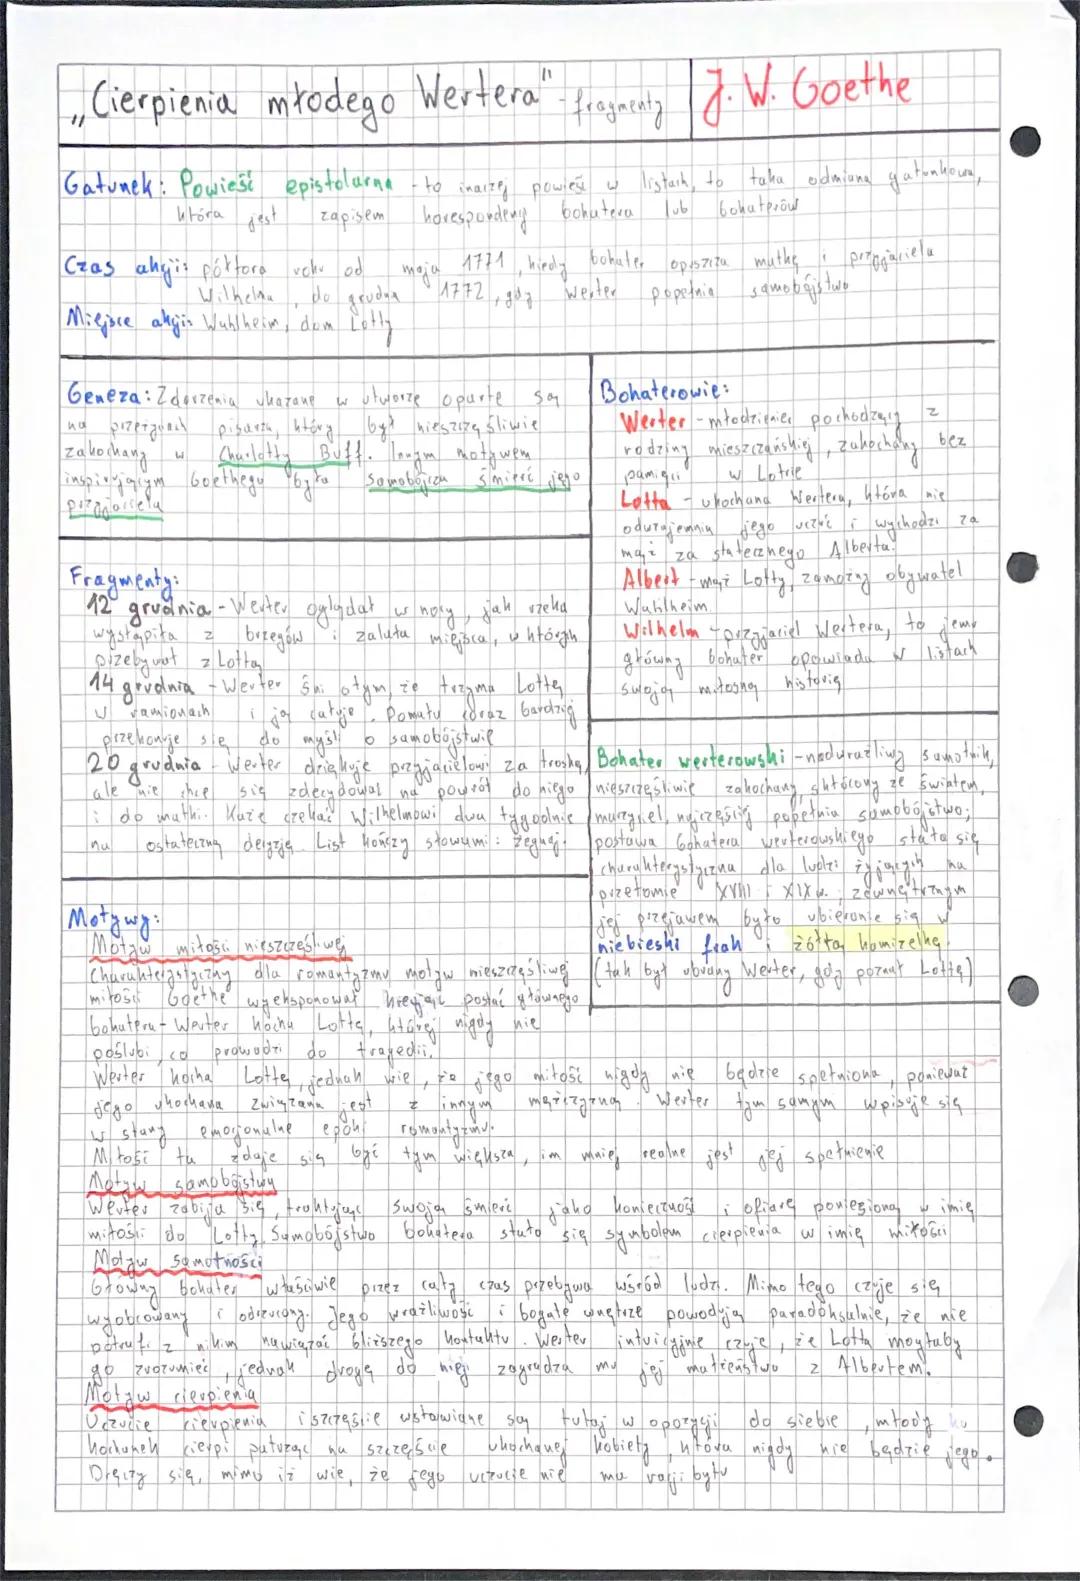 „Cierpienia młodego Wertera" - fragmenty
J. W. Goethe
Gatunek: Powieść epistolarna - to inaczej powieść w listach, to taka odmiana gatunkowa,
która jest zapisem korespondencji bohatera lub bohaterów
Czas akcji: półtora roku od maja 1771, kiedy bohater opuszcza matkę i przyjaciela
Wilhelma, do grudnia 1772, gdy Werter popełnia samobójstwo
Miejsce akcji: Wahlheim, dom Lotty
Geneza: Zdarzenia ukazane w utworze oparte są
na przeżyciach pisarza, który był nieszczęśliwie
zakochany w Charlotty Buff. Innym motywem
inspirującym Goethego była samobójcza śmierć jego
przyjaciela
Fragmenty:
12 grudnia - Werter oglądał w nocy, jak rzeka
wystąpiła z brzegów i zalała miejsca, w których
przebywał z Lottą
14 grudnia - Werter śni o tym, że trzyma Lottę
w ramionach i ją całuje. Pomału coraz bardziej
przekonuje się do myśli o samobójstwie
20 grudnia - Werter dziękuje przyjacielowi za troskę,
ale nie chce się zdecydować na powrót do niego
i do matki. Każe czekać Wilhelmowi dwa tygodnie
na ostateczną decyzję. List kończy słowami: żegnaj.
Bohaterowie:
Werter - młodzieniec pochodzący z
rodziny mieszczańskiej, zakochany bez
pamięci w Lotcie
Lotta - ukochana Wertera, która nie
odwzajemnia jego uczuć i wychodzi za
mąż za statecznego Alberta.
Albert - mąż Lotty, zamożny obywatel
Wahlheim
Wilhelm - przyjaciel Wertera, to jemu
główny bohater opowiada w listach
swoją miłosną historię
Bohater werterowski - nadwrażliwy samotnik,
nieszczęśliwie zakochany, skłócony ze światem,
marzyciel, najczęściej popełnia samobójstwo;
postawa bohatera werterowskiego stała się
charakterystyczna dla ludzi żyjących na
przełomie XVIII i XIX w.; zewnętrznym
jej przejawem było ubieranie się w
niebieski frak i żółtą kamizelkę.
(tak był ubrany Werter, gdy poznał Lottę)
Motywy:
Motyw miłości nieszczęśliwej
Charakterystyczny dla romantyzmu motyw nieszczęśliwej
miłości Goethe wyeksponował kreując postać głównego
bohatera - Werter kocha Lottę, której nigdy nie
poślubi, co prowadzi do tragedii.
Werter kocha Lottę, jednak wie, że jego miłość nigdy nie będzie spełniona, ponieważ
jego ukochana związana jest z innym mężczyzną. Werter tym samym wpisuje się
w stany emocjonalne epoki romantyzmu.
Miłość ta zdaje się być tym większa, im mniej realne jest jej spełnienie
Motyw samobójstwa
Werter zabija się, traktując swoją śmierć jako konieczność i ofiarę poniesioną w imię
miłości do Lotty. Samobójstwo bohatera stało się symbolem cierpienia w imię miłości
Motyw samotności
Główny bohater właściwie przez cały czas przebywa wśród ludzi. Mimo tego czuje się
wyobcowany i odrzucony. Jego wrażliwość i bogate wnętrze powodują paradoksalnie, że nie
potrafi z nikim nawiązać bliższego kontaktu. Werter intuicyjnie czuje, że Lotta mogłaby
go zrozumieć, jednak drogę do niej zagradza mu jej małżeństwo z Albertem.
Motyw cierpienia
Uczucie cierpienia i szczęście ustawiane są tutaj w opozycji do siebie, młody
kochanek cierpi patrząc na szczęście ukochanej kobiety, która nigdy nie będzie jego.
Dręczy się, mimo iż wie, że jego uczucie nie ma racji bytu